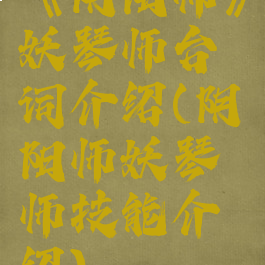 《阴阳师》
妖琴师台
词介绍(阴
阳师妖琴
师技能介
绍)